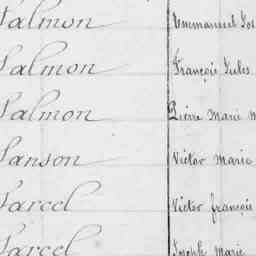 Salmon Emmanuel Jos
Salmon François Jules
Salmon Pierre Marie M
Sanson Victor Marie
Sarcel Victor françois
Sarcel Joseph Marie